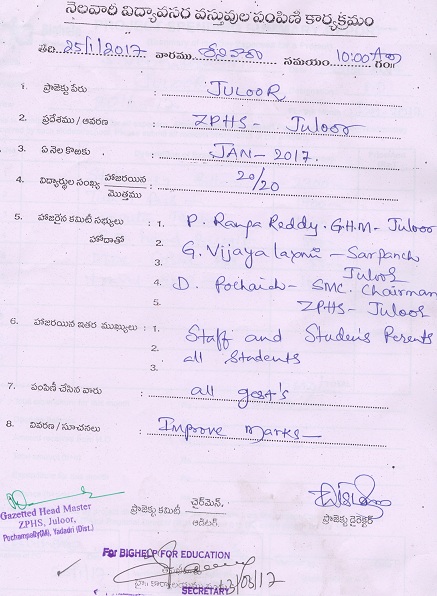 నెలవారీ విద్యావసర వస్తువుల పంపిణి కార్యక్రమం
తేది 25/1/2017 వారము శనివారం సమయం 10:00 గం॥
1. ప్రాజెక్టు పేరు : JULOOR
2. ప్రదేశము / ఆవరణ : ZPHS - Juloor
3. ఏ నెల కొఱకు : JAN - 2017.
4. విద్యార్థుల సంఖ్య హాజరయిన / మొత్తము : 20/20
5. హాజరైన కమిటీ సభ్యులు : 1. P. Rampa Reddy. G.H.M - Juloor
హోదాతో 2. G. Vijaya laxmi - Sarpanch
3. Juloor
4. D. Pochaiah - SMC. Chairman
5. ZPHS - Juloor
6. హాజరయిన ఇతర ముఖ్యులు : 1. Staff and Students Perents
2. all Students
3.
7. పంపిణీ చేసిన వారు : all gest's
8. వివరణ / సూచనలు : Improve marks -
Gazetted Head Master
ZPHS, Juloor,
Pochampally(M), Yadadri (Dist.)
ప్రాజెక్టు కమిటీ చైర్‌మెన్, ఆడిటర్.
ప్రాజెక్టు డైరెక్టర్
For BIGHELP FOR EDUCATION
3/03/17
SECRETARY